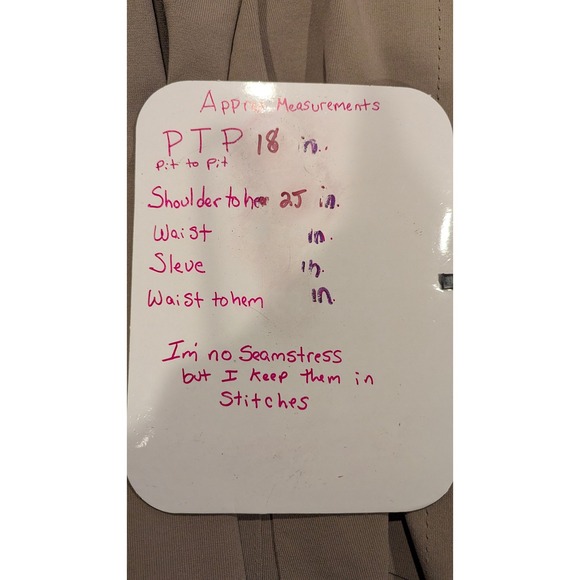 Approx Measurements
PTP 18 in.
Pit to Pit
Shoulder to hem 25 in.
Waist in.
Sleve in.
Waist to hem in.
I'm no Seamstress
but I keep them in
Stitches